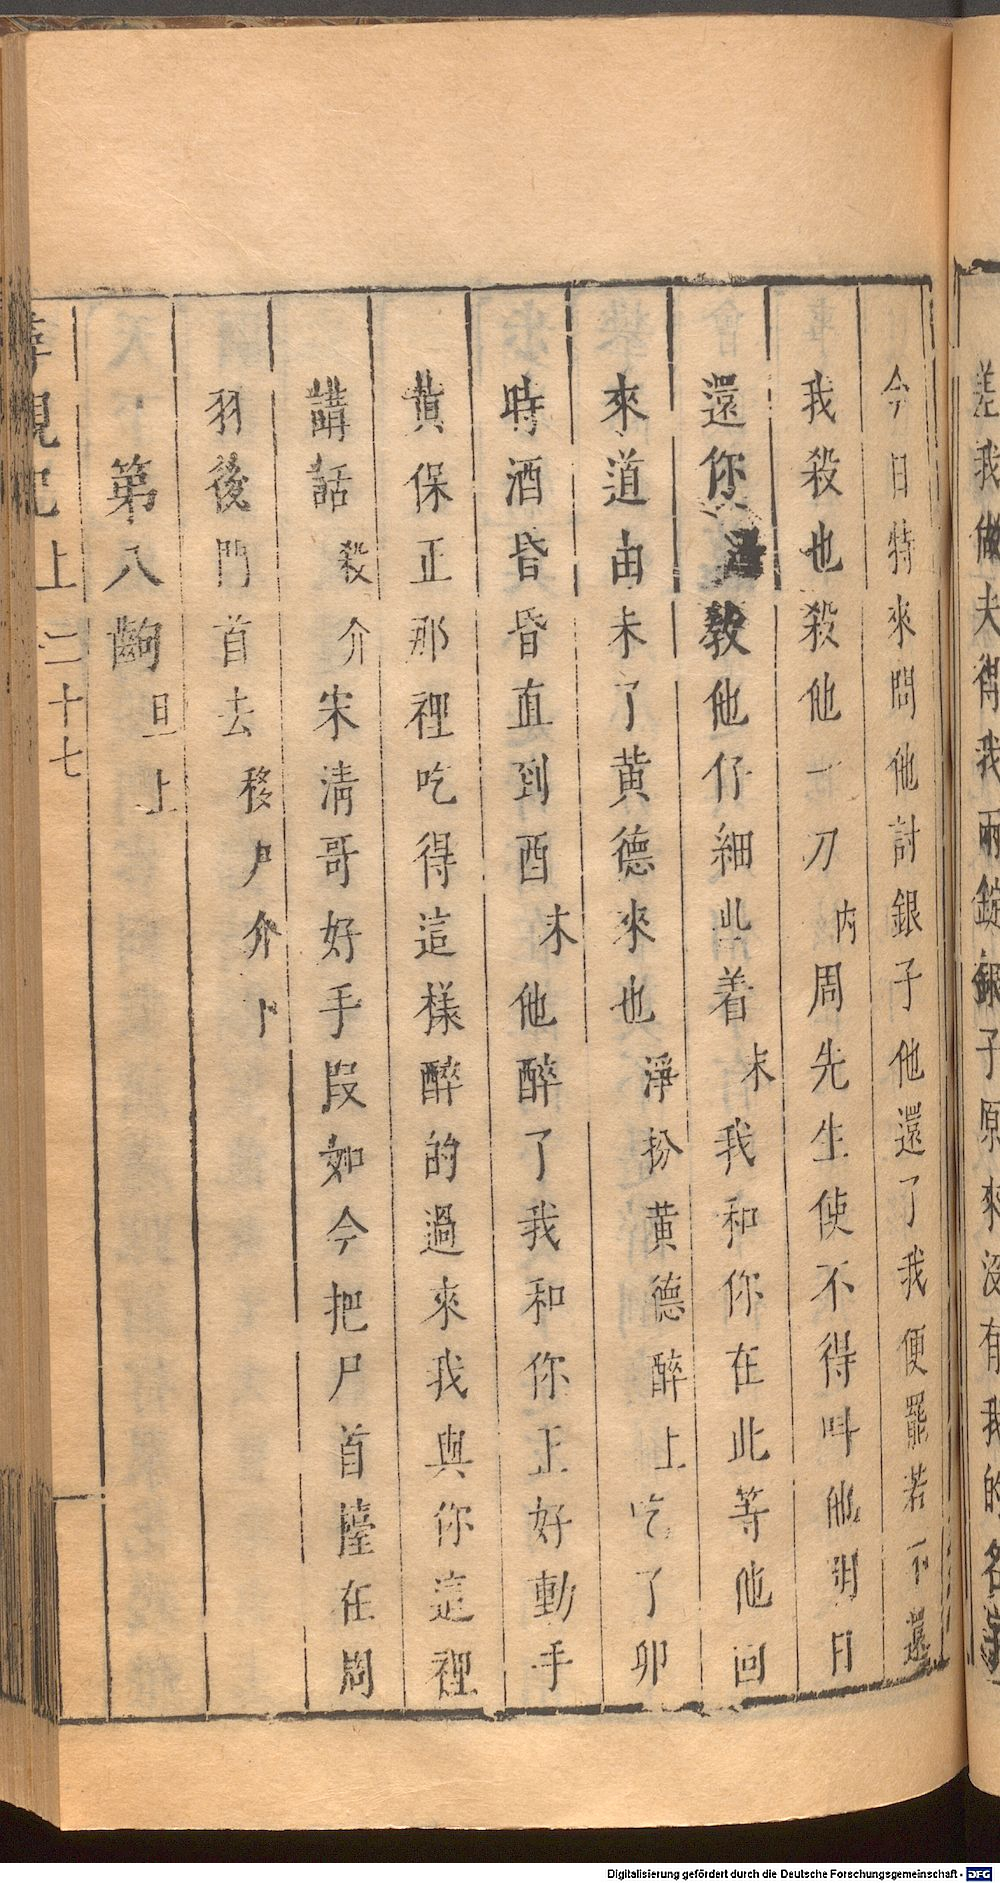 差我做夫得我兩錠銀子原來沒有我的名字
今日特來問他討銀子他還了我便罷若不還
我殺也殺他一刀內周先生使不得叫他明日
還你還教他仔細些着末我和你在此等他回
來道由未了黃德來也淨扮黃德醉上吃了卯
時酒昏昏直到酉末他醉了我和你正好動手
黃保正那裡吃得這樣醉的過來我與你這裡
講話殺介宋淸哥好手叚如今把尸首擡在周
羽後門首去移尸介下
第八齣旦上
尋親記上二十七
Digitalisierung gefördert durch die Deutsche Forschungsgemeinschaft - DFG